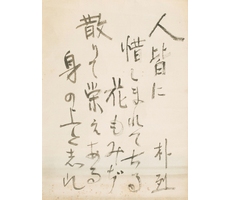 人皆に
惜しまれてちる
花もみぢ
散りて栄える
身の上と志れ
朴烈